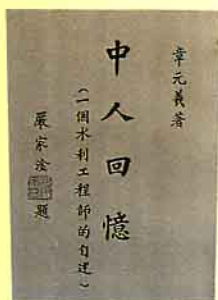 章元義著
中人回憶
(一個水利工程師的自述)
嚴家淦 題